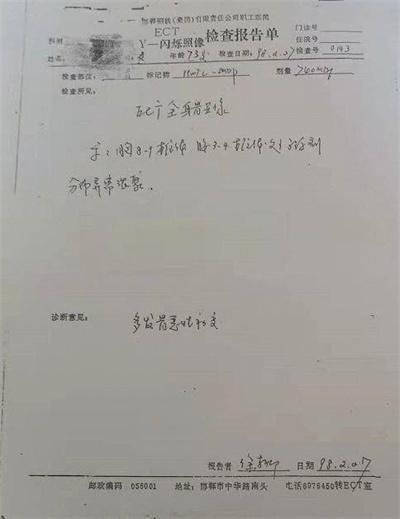 邯郸钢铁(集团)有限责任公司职工医院
ECT
γ—闪烁照像 检查报告单
门诊号
住院号
检查号 0143
科别
姓名: 年龄 73岁 日期 98.2.07
检查部位: 标记物 99mTc-MDP 剂量 740MBq
检查所见:
ECT全身骨显像
示:胸8-9椎体 腰3-4椎体
分布异常浓聚.
诊断意见: 多发骨恶性病变
报告者 日期 98.2.07
邮政编码 056001 地址:邯郸市中华路南头 电话6976450转ECT室